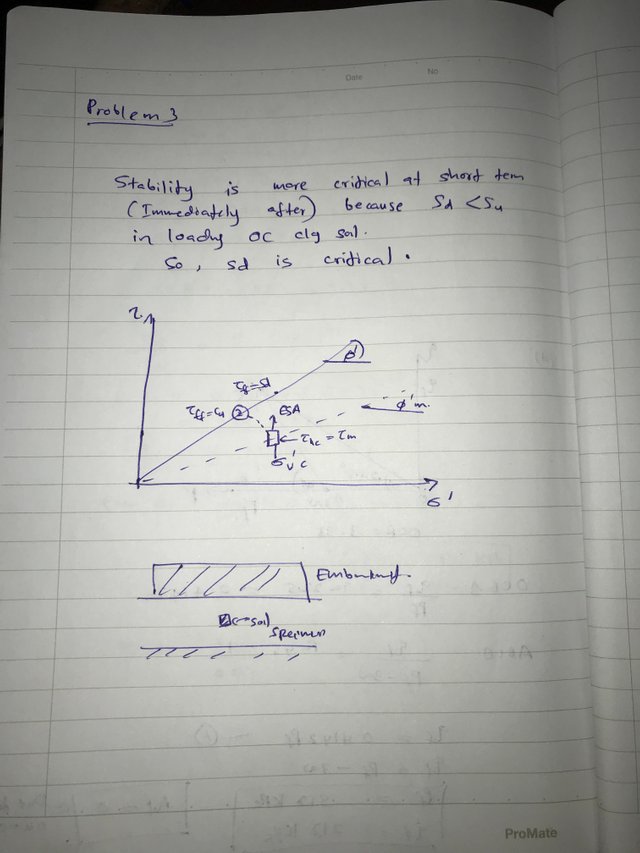 Date No
Problem 3
Stability is more critical at short tem
(Immediately after) because Sd < Su
in loading OC clay soil.
So, sd is critical.
τ
φ'
τff=sd
τff=cu
2
ESA
φ'm.
τhc = τm
σv'c
σ'
Embankment.
soil
specimen
ProMate